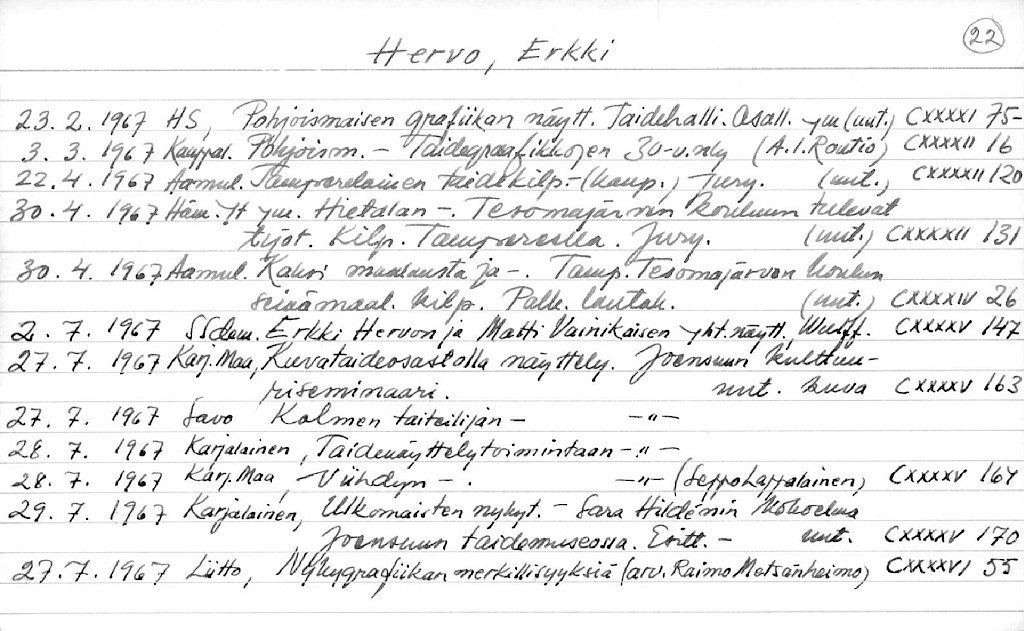 22
Hervo, Erkki
23. 2. 1967 HS, Pohjoismaisen grafiikan näytt. Taidehalli. Osall. ym (uut.) CXXXXI 75-
3. 3. 1967 Kauppal. Pohjoism. - Taidegraafikkojen 30-v. nly (A.I. Routio) CXXXXII 16
22. 4. 1967 Aamul. Tamperelainen taidekilp. - (kaup.) Jury. (uut.) CXXXXII 120
30. 4. 1967 Häm. Yht ym. Hietalan -. Tesomajärven kouluun tulevat
työt. Kilp. Tampereella. Jury. (uut.) CXXXXII 131
30. 4. 1967 Aamul. Kaksi maalausta ja -. Tamp. Tesomajärven koulun
seinämaal. kilp. Palk. lautak. (uut.) CXXXXIV 26
2. 7. 1967 SSdem. Erkki Hervon ja Matti Vainikaisen yht. näytt. Wulff. CXXXXV 147
27. 7. 1967 Karj. Maa, Kuvataideosastolla näyttely. Joensuun kulttuu-
riseminaari. uut. kuva CXXXXV 163
27. 7. 1967 Savo Kolmen taiteilijan - -"-
28. 7. 1967 Karjalainen, Taidenäyttelytoimintaan -"-
28. 7. 1967 Karj. Maa, Viihdyn - . -"- (Seppo Lappalainen) CXXXXV 164
29. 7. 1967 Karjalainen, Ulkomaisten nykyt. - Sara Hildénin kokoelma
Joensuun taidemuseossa. Esitt. - uut. CXXXXV 170
27. 7. 1967 Liitto, Nykygrafiikan merkillisyyksiä (arv. Raimo Metsänheimo) CXXXXVI 55